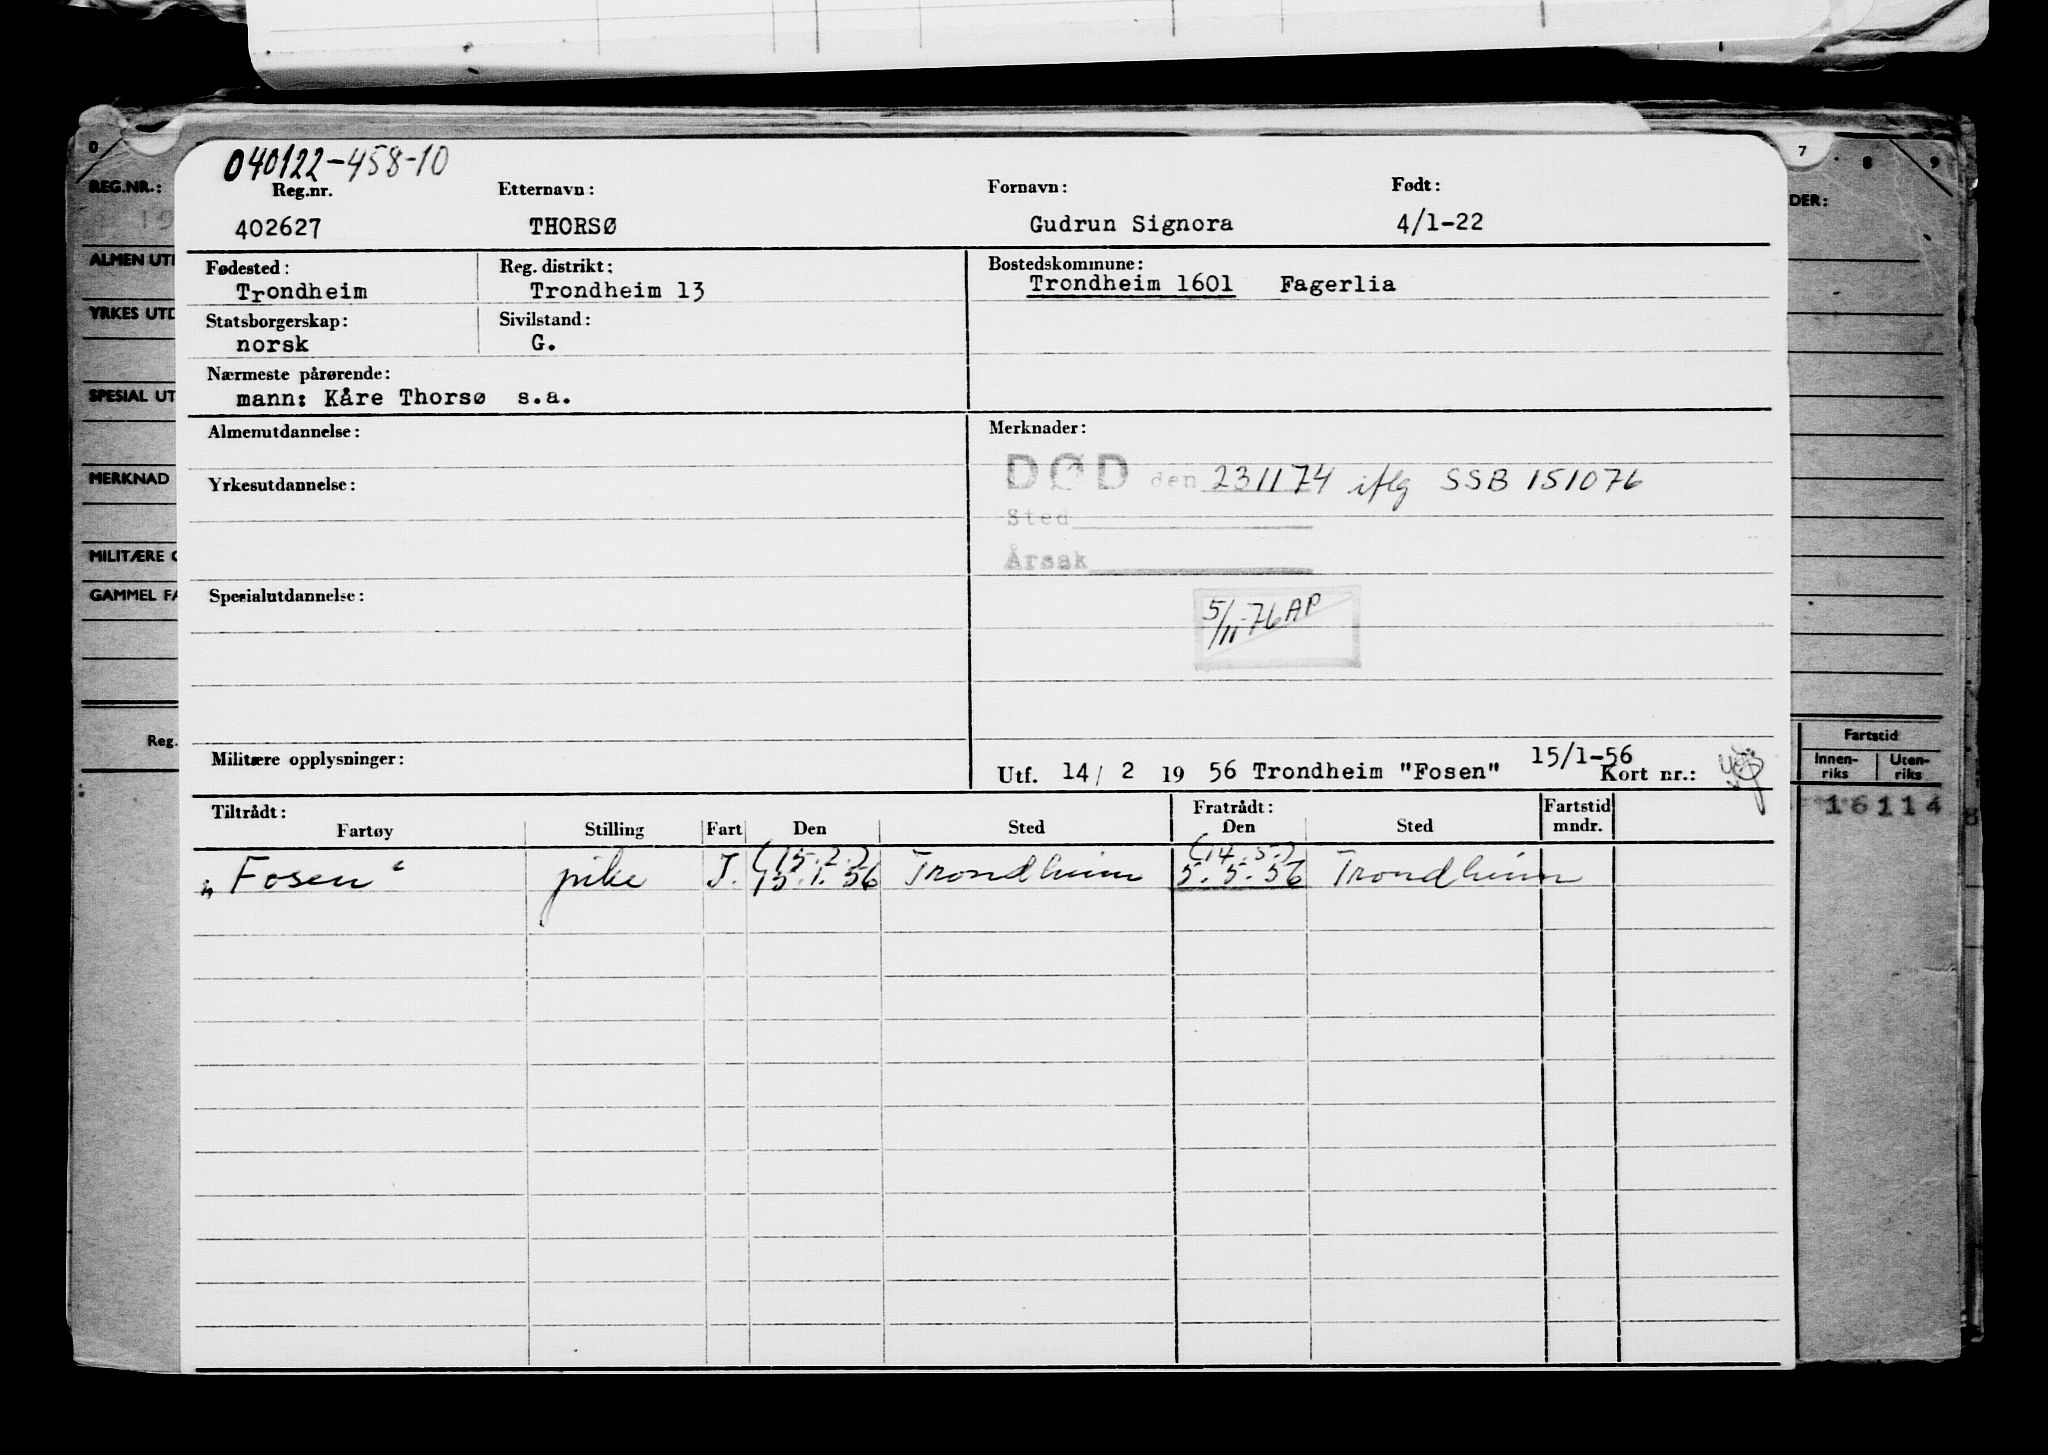 040122-458-10
Reg.nr. Etternavn: Fornavn: Født:
402627 THORSØ Gudrun Signora 4/1-22
Fødested: Reg. distrikt: Bostedskommune:
Trondheim Trondheim 13 Trondheim 1601 Fagerlia
Statsborgerskap: Sivilstand:
norsk G.
Nærmeste pårørende:
mann: Kåre Thorsø s.a.
Almenutdannelse: Merknader:
DØD den 231174 iflg SSB 151076
Yrkesutdannelse:
Sted
Årsak
Spesialutdannelse:
5/11-76 AP
Militære opplysninger:
Utf. 14/ 2 19 56 Trondheim "Fosen" 15/1-56 Kort nr.:
Tiltrådt: Fratrådt: Fartstid
Fartøy Stilling Fart Den Sted Den Sted mndr.
(15.2.) (14.5.)
„Fosen“ pike I. 15.1.56 Trondheim 5.5.56 Trondheim
0 7 8 9
REG.NR.: DER:
19
ALMEN UTD
YRKES UTD
SPESIAL UT
MERKNAD
MILITÆRE O
GAMMEL FA
Reg.
Fartstid
Innen-riks Uten-riks
16114 8